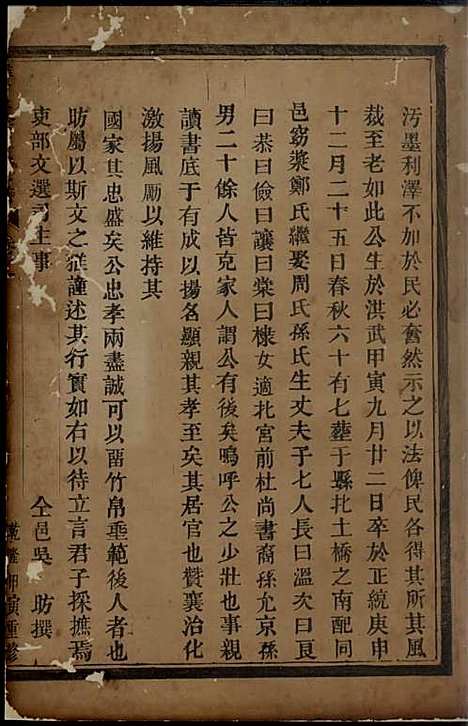 汚墨利澤不加於民必奮然示之以法俾民各得其所其風
裁至老如此公生於洪武甲寅九月廿二日卒於正統庚申
十二月二十五日春秋六十有七塟于縣北土橋之南配同
邑竊漿鄭氏繼娶周氏孫氏生丈夫子七人長曰溫次曰良
曰恭曰儉曰讓曰棠曰棣女適北宮前杜尚書裔孫允京孫
男二十餘人皆克家人謂公有後矣嗚呼公之少壯也事親
讀書底于有成以揚名顯親其孝至矣其居官也贊襄治化
激揚風勵以維持其
國家其忠盛矣公忠孝兩盡誠可以畱竹帛垂範後人者也
昉屬以斯文之雅謹述其行實如右以待立言君子採摭焉
吏部文選司主事 仝邑吳 昉撰